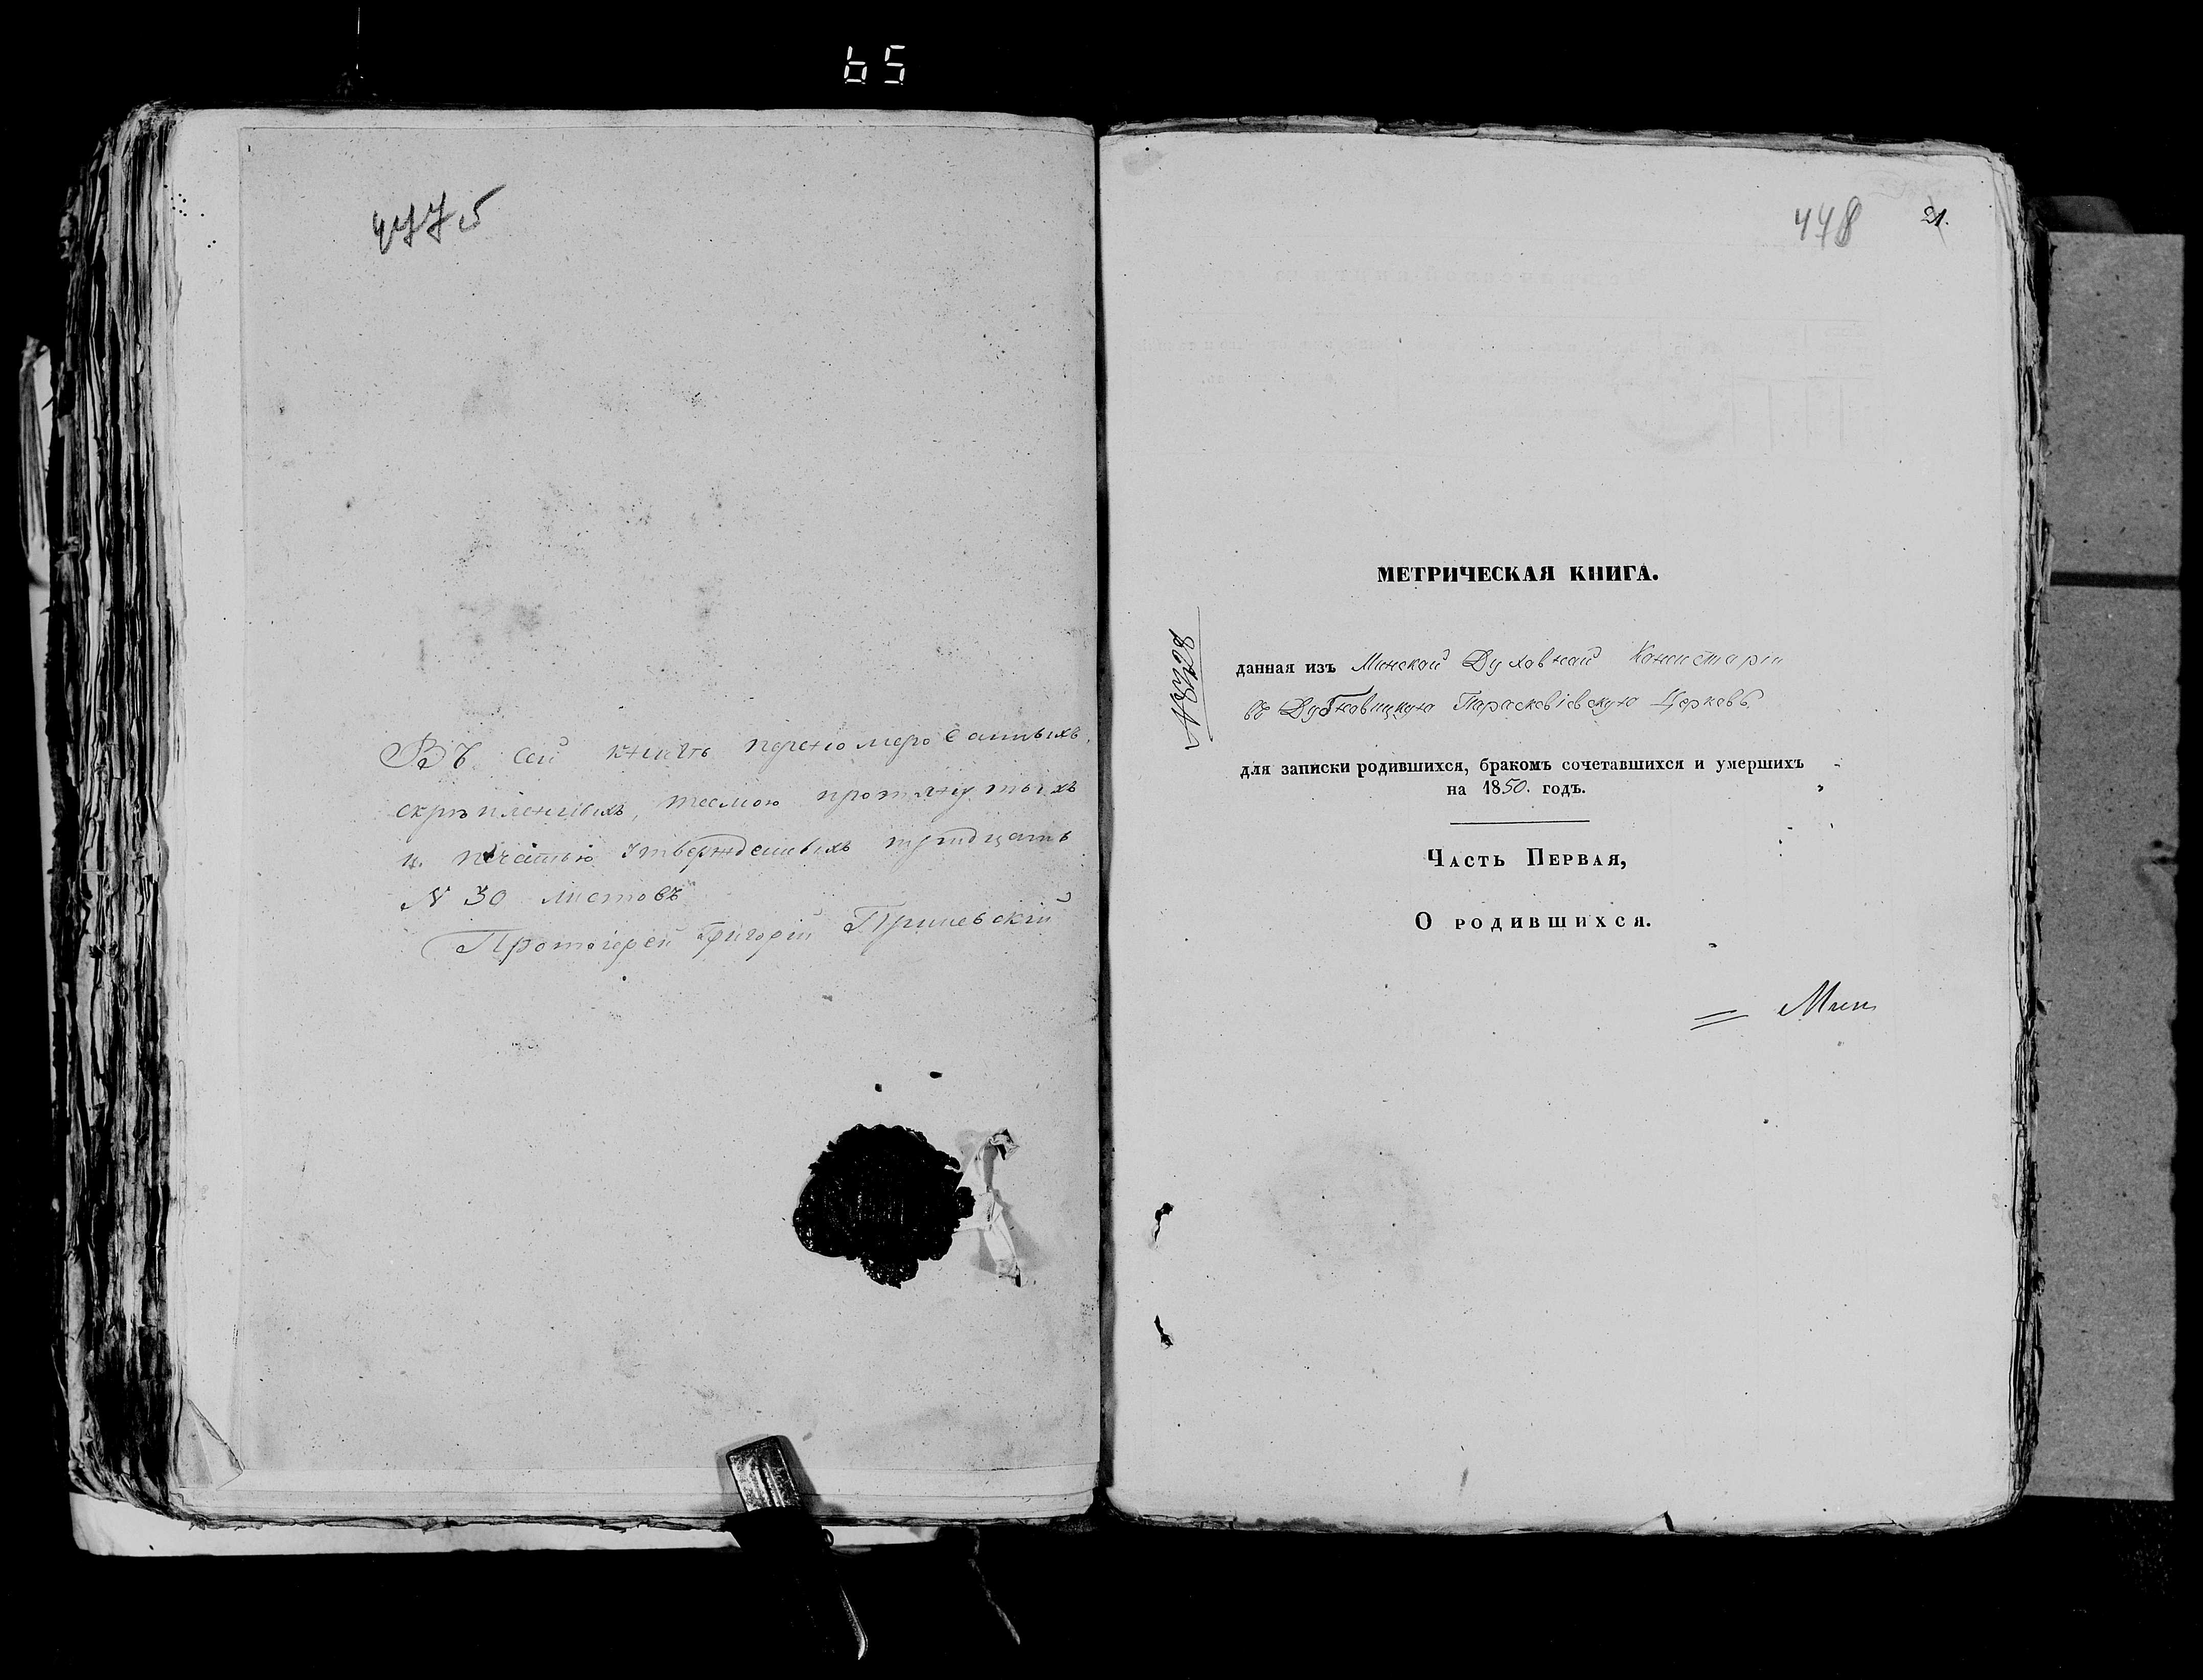 65
Въ сей книгѣ перенумерованныхъ,
скрѣпленныхъ, тесмою протянутыхъ
и печатью утвержденныхъ тридцать
N 30 листовъ
Протоіерей Григорій
448
21.
МЕТРИЧЕСКАЯ КНИГА.
данная изъ Минской Духовной Консисторіи
въ Дубновицкую Параскевіевскую Церковь
для записки родившихся, бракомъ сочетавшихся и умершихъ
на 1850. годъ.
Часть Первая,
О родившихся.